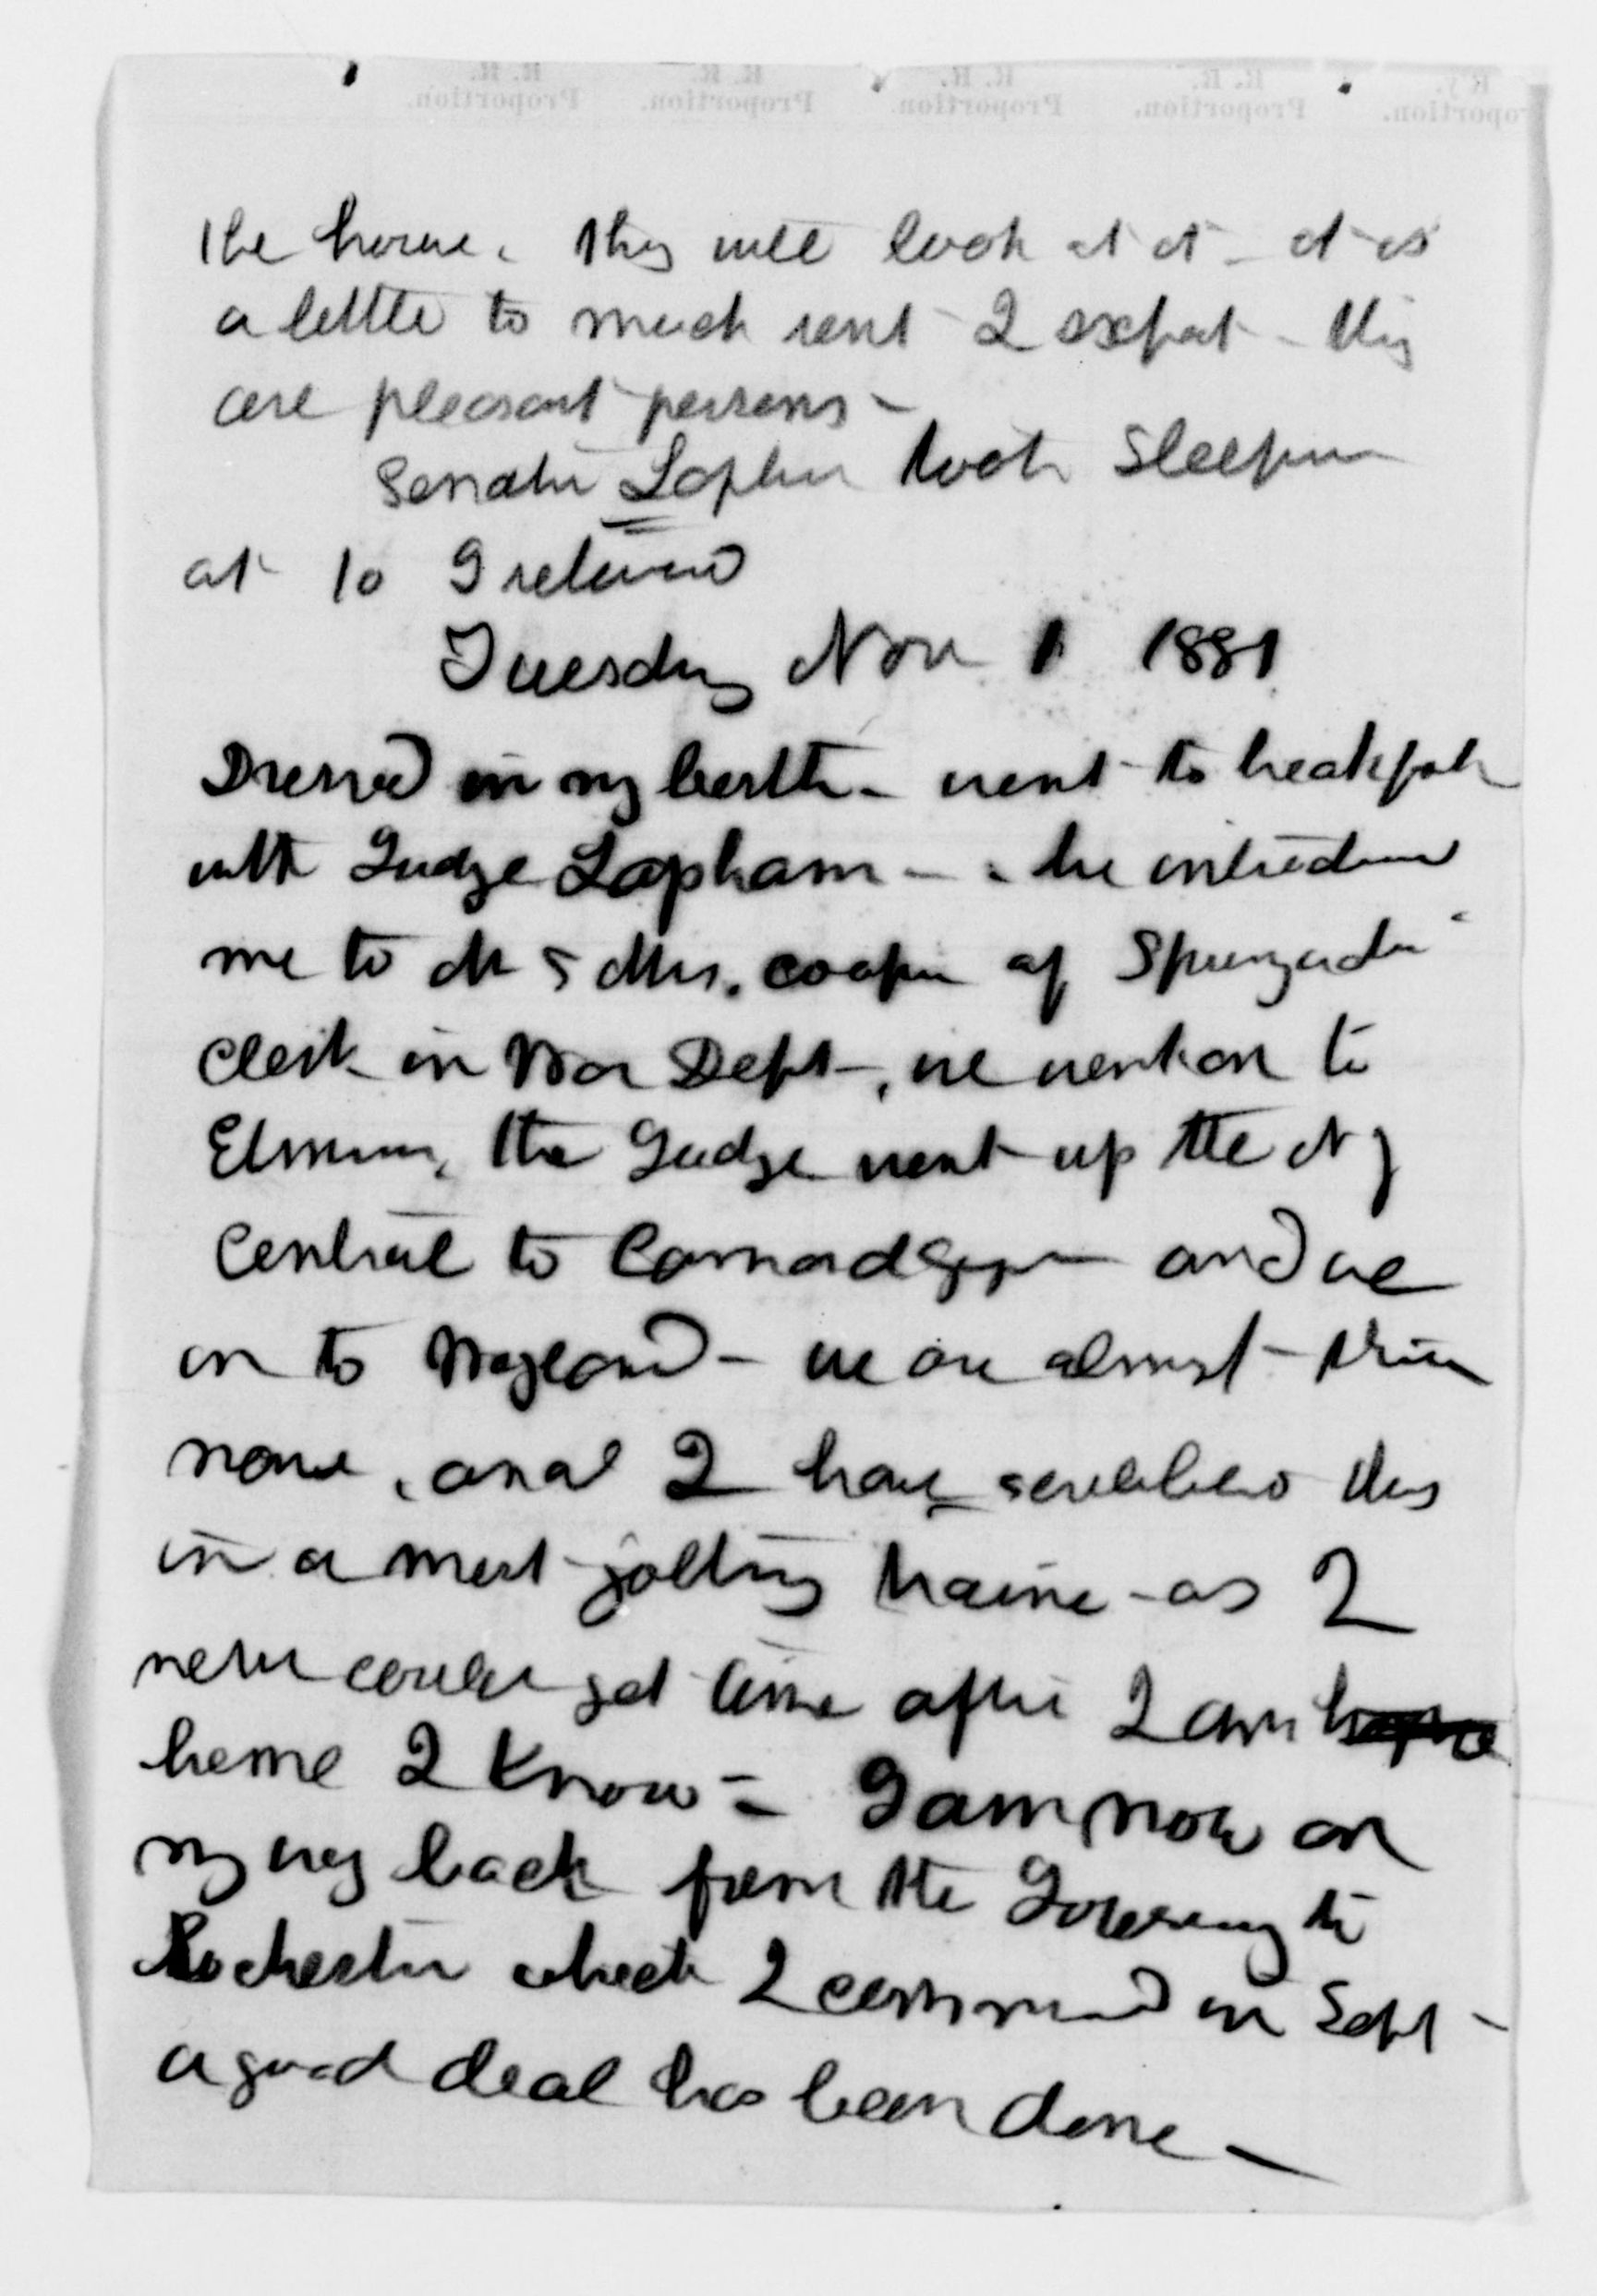 R. R. Proportion. R. R. Proportion. R. R. Proportion. R. R. Proportion. Ry. Proportion.
the house. they will look at it - it is
a little to much rent I expect - they
are pleasant persons -
Senator Laphm took sleeper
at 10 I retired
Tuesday Nov 1 1881
Dressed in my berth - went to breakfast
with Judge Lapham - he introduced
me to Mr & Mrs. Cooper of
clerk in War Dept -, we went on to
Elmira, the Judge went up the N Y
Central to Canandagua and we
on to Wayland - we are almost there
now, and I have scribbled this
in a most jolting traine - as I
never could get time after I am
home I know = I am now on
my way back from the Journey to
Rochester which I commenced in Sept -
a good deal has been done -